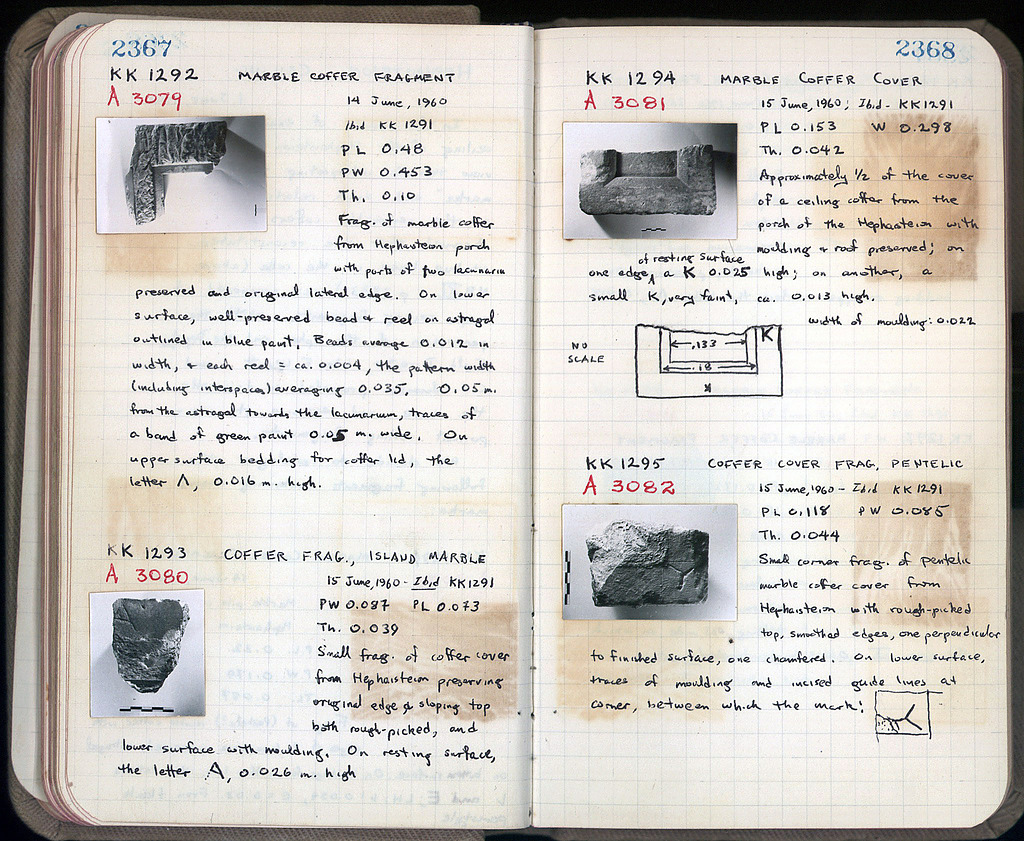 2367
KK 1292 MARBLE COFFER FRAGMENT
A 3079
14 June, 1960
Ibid KK 1291
PL 0.48
PW 0.453
Th. 0.10
Frag. of marble coffer
from Hephaisteion porch
with parts of two lacunaria
preserved and original lateral edge. On lower
surface, well-preserved bead & reel on astragal
outlined in blue paint. Beads average 0.012 in
width, & each reel = ca. 0.004, the pattern width
(including interspaces) averaging 0.035. 0.05 m.
from the astragal towards the lacunarium, traces of
a band of green paint 0.05 m. wide. On
upper surface bedding for coffer lid, the
letter Λ, 0.016 m. high.
KK 1293 COFFER FRAG., ISLAND MARBLE
A 3080
15 June, 1960 - Ibid KK1291
PW 0.087 PL 0.073
Th. 0.039
Small frag. of coffer cover
from Hephaisteion preserving
original edge & sloping top
both rough-picked, and
lower surface with moulding. On resting surface,
the letter A, 0.026 m. high
2368
KK 1294 MARBLE COFFER COVER
A 3081
15 June, 1960; Ibid - KK1291
PL 0.153 W 0.298
Th. 0.042
Approximately 1/2 of the cover
of a ceiling coffer from the
porch of the Hephaisteion with
moulding & roof preserved; on
of resting surface
one edge, a K 0.025 high; on another, a
small K, very faint, ca. 0.013 high.
width of moulding: 0.022
NO
SCALE
.133
K
.18
KK 1295 COFFER COVER FRAG, PENTELIC
A 3082
15 June, 1960 - Ibid KK1291
PL 0.118 PW 0.085
Th. 0.044
Small corner frag. of pentelic
marble coffer cover from
Hephaisteion with rough-picked
top, smoothed edges, one perpendicular
to finished surface, one chamfered. On lower surface,
traces of moulding and incised guide lines at
corner, between which the mark: